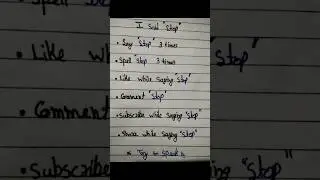 I Said "Stop"
• Say "Stop" 3 times
• Spell "Stop 3 times
• Like while saying "Stop"
• Comment "Stop"
• Subscribe while saying "Stop"
• Share while saying "Stop"
Try